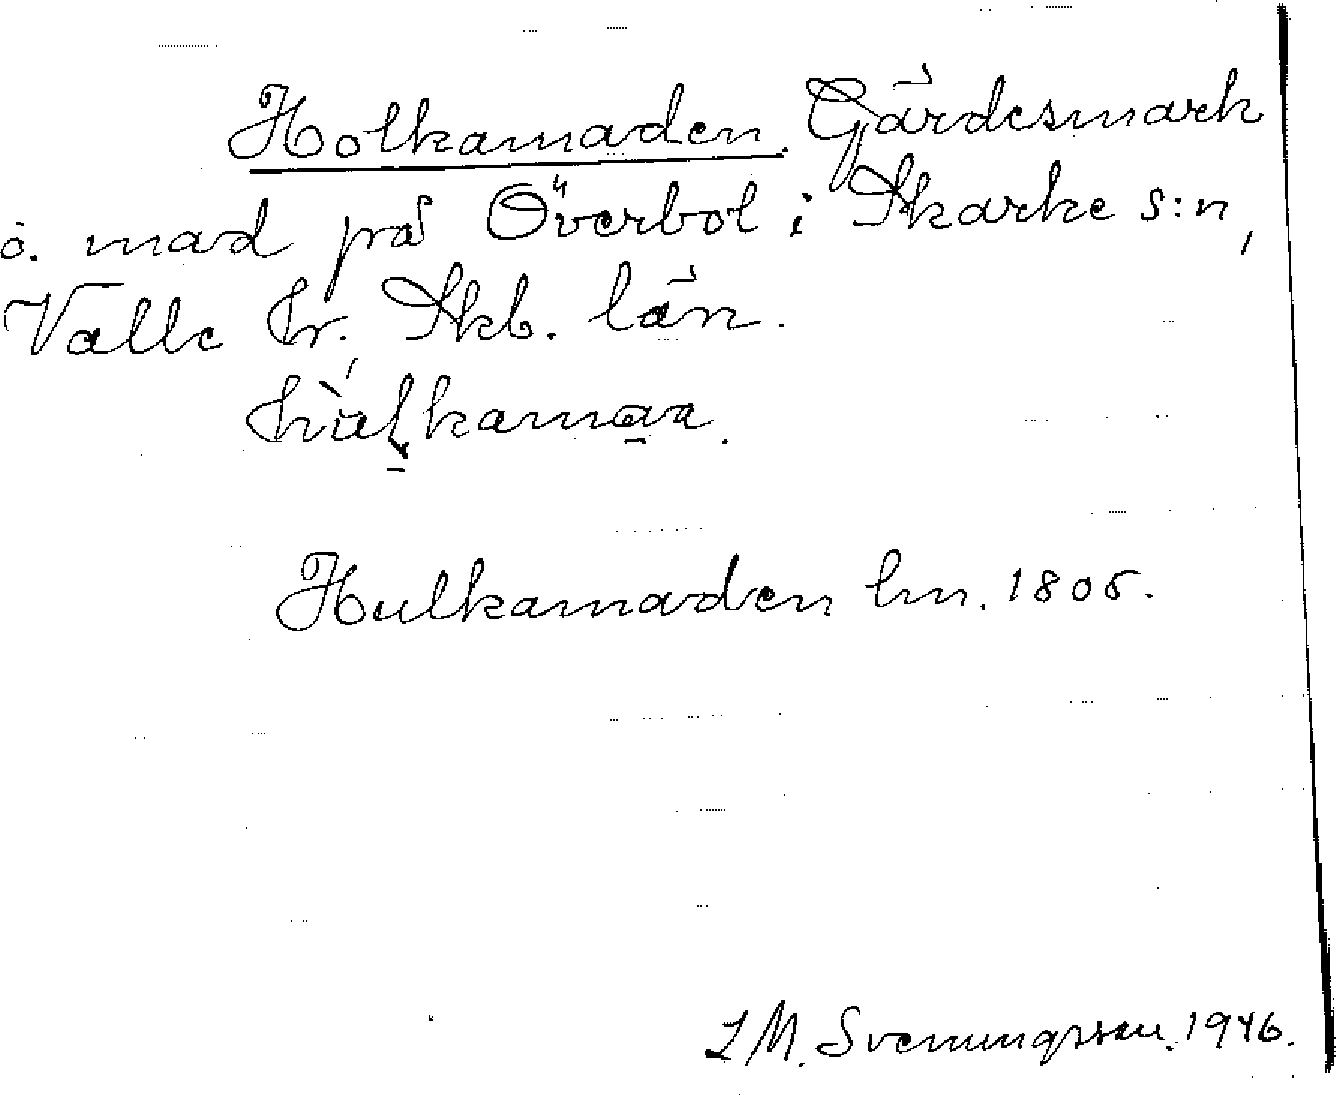 Holkamaden. Gärdesmark
o. mad på Överbol i Skarke s:n,
Valle hr. Skb. län.
hùlkamaa.
Hulkamaden lm. 1805.
L M. Svenungsson. 1946.